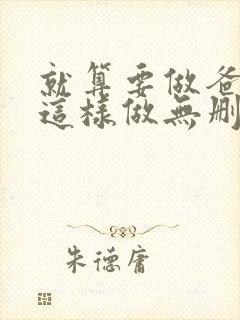 就算要做爸
這樣做無删
朱德庸